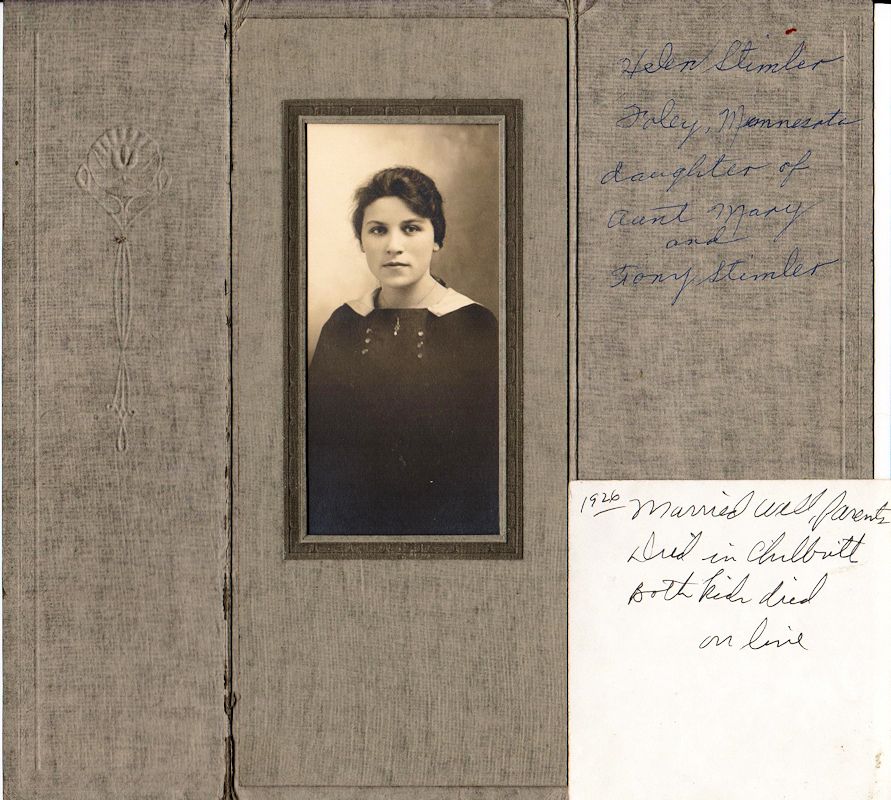 Helen Stimler
Foley, Minnesota
daughter of
Aunt Mary
and
Tony Stimler
1926 Married well, parents
Died in
Both kids died
on line